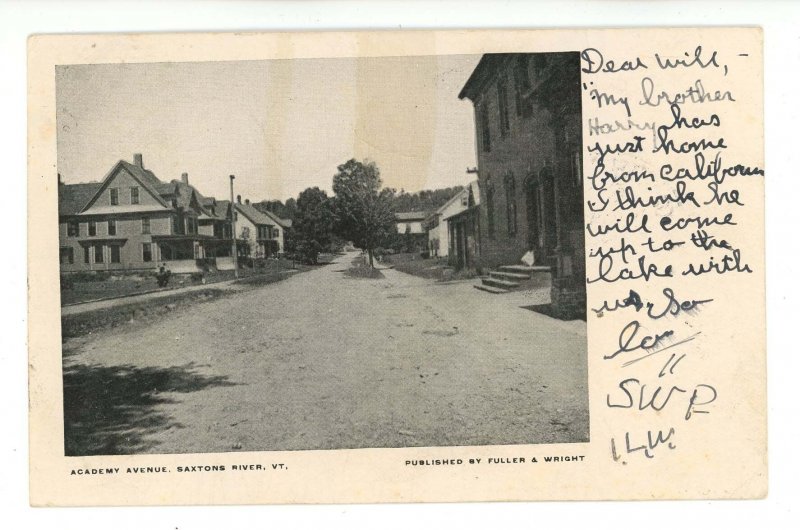 Dear Will, -
"My brother
Harry has
just home
from California
I think he
will come
up to the
lake with
us. So
long
SWP
ILW.
ACADEMY AVENUE, SAXTONS RIVER, VT.
PUBLISHED BY FULLER & WRIGHT